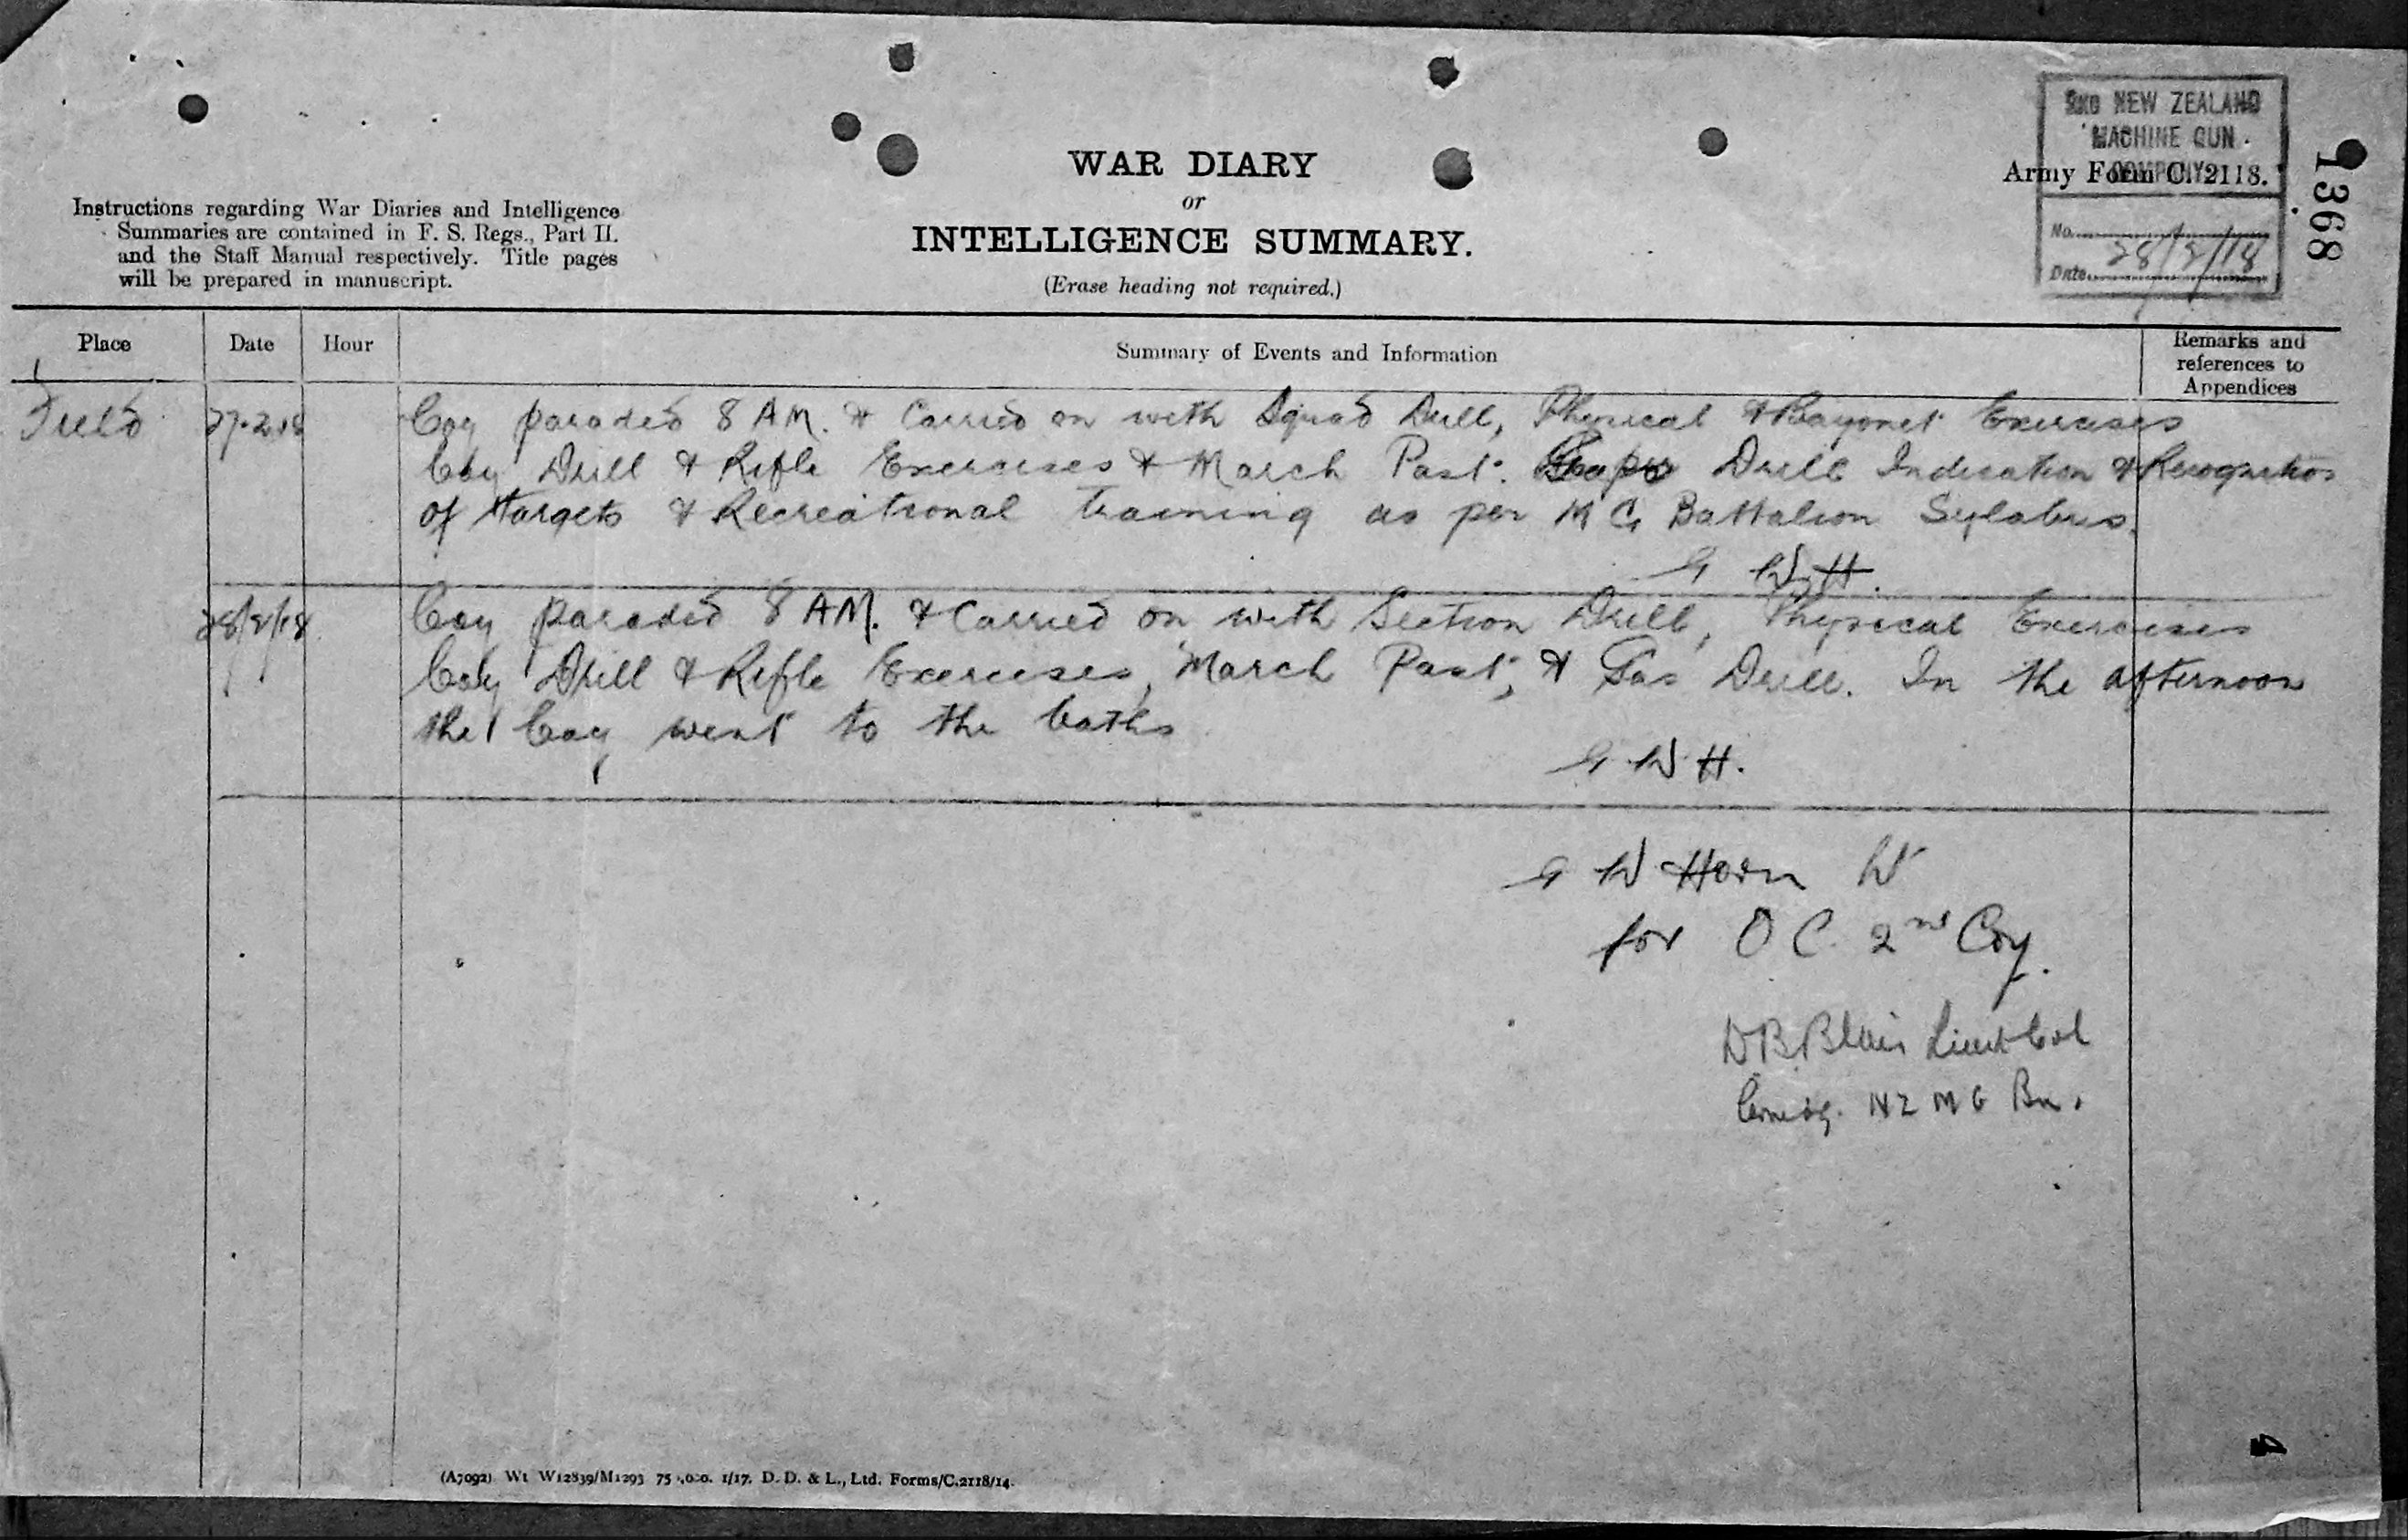 2ND NEW ZEALAND
MACHINE GUN
COMPANY
Army Form C. 2118.
1368
No.
Date 28/2/18
WAR DIARY
or
INTELLIGENCE SUMMARY.
(Erase heading not required.)
Instructions regarding War Diaries and Intelligence
Summaries are contained in F. S. Regs., Part II.
and the Staff Manual respectively. Title pages
will be prepared in manuscript.
Place Date Hour Summary of Events and Information Remarks and
references to
Appendices
Field 27.2.18 Coy paraded 8 AM. & Carried on with Squad Drill, Physical & Bayonet Exercises
Coy Drill & Rifle Exercises & March Past. Drill Indication & Recognition
of targets & Recreational training as per M G Battalion Sylabus.
G W H.
28/2/18 Coy paraded 8 AM. & Carried on with Section Drill, Physical Exercises
Coy Drill & Rifle Exercises, March Past, & Gas Drill. In the afternoon
the Coy went to the baths
G W H.
G W Horn Lt
for O C. 2nd Coy.
D B Blair Lieut Col
Comdg. N Z M G Bn.
4
(A7092) Wt W12839/M1293 75 ,000. 1/17. D. D. & L., Ltd. Forms/C.2118/14.